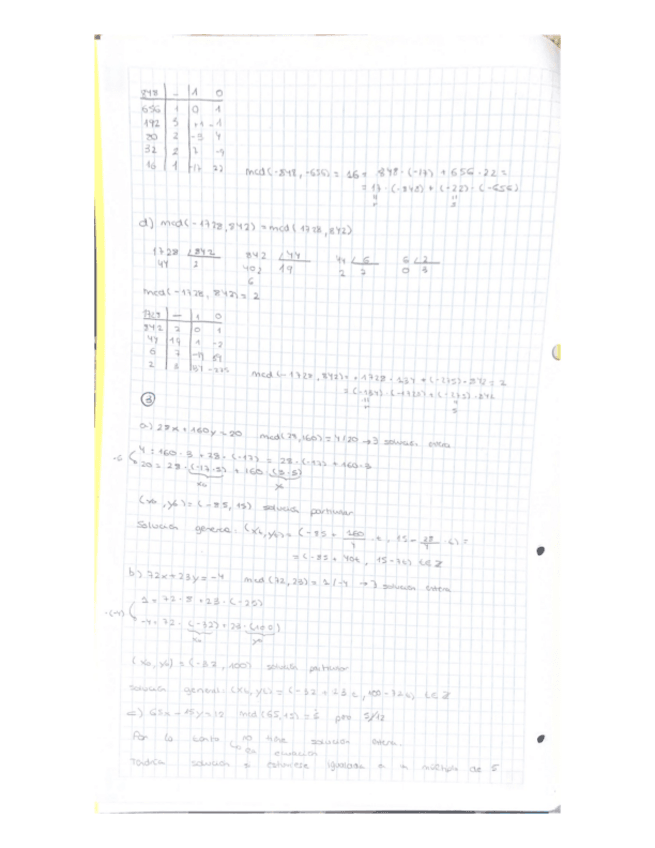 848 | - | 1 0
656 | 1 | 0 1
192 | 3 | +1 -1
80 | 2 | -3 4
32 | 2 | 7 -9
16 | 1 | -17 22
mcd(-848, -656) = 16 = 848·(-17) + 656·22 =
= 17·(-848) + (-22)·(-656)
d) mcd(-1728, 842) = mcd(1728, 842)
1728 | 842 842 | 44 44 | 6 6 | 2
44 2 402 19 2 7 0 3
6
mcd(-1728, 842) = 2
1728 | - | 1 0
842 | 2 | 0 1
44 | 19 | 1 -2
6 | 7 | -19 39
2 | 3 | 134 -275
mcd(-1728, 842) = 1728·134 + (-275)·842 = 2
= (-134)·(-1728) + (-275)·842
③
a) 28x + 160y = 20 mcd(28,160) = 4/20 → ∃ solución entera
4 = 160·3 + 28·(-17) = 28·(-17) + 160·3
20 = 28·(-17·5) + 160·(3·5)
x₀ y₀
(x₀, y₀) = (-85, 15) solución particular
Solución general: (xt, yt) = (-85 + 160/4 · t, 15 - 28/4 · t) =
= (-85 + 40t, 15 - 7t) t∈Z
b) 72x + 23y = -4 mcd(72, 23) = 1/-4 → ∃ solución entera
1 = 72·8 + 23·(-25)
·(-4)
-4 = 72·(-32) + 23·(100)
x₀ y₀
(x₀, y₀) = (-32, 100) solución particular
solución general: (xt, yt) = (-32 + 23t, 100 - 72t), t∈Z
c) 65x - 15y = 12 mcd(65, 15) = 5 pero 5/12
Por lo tanto no hay solución entera.
↳ la ecuación
Tendría solución si estuviese igualada a un múltiplo de 5